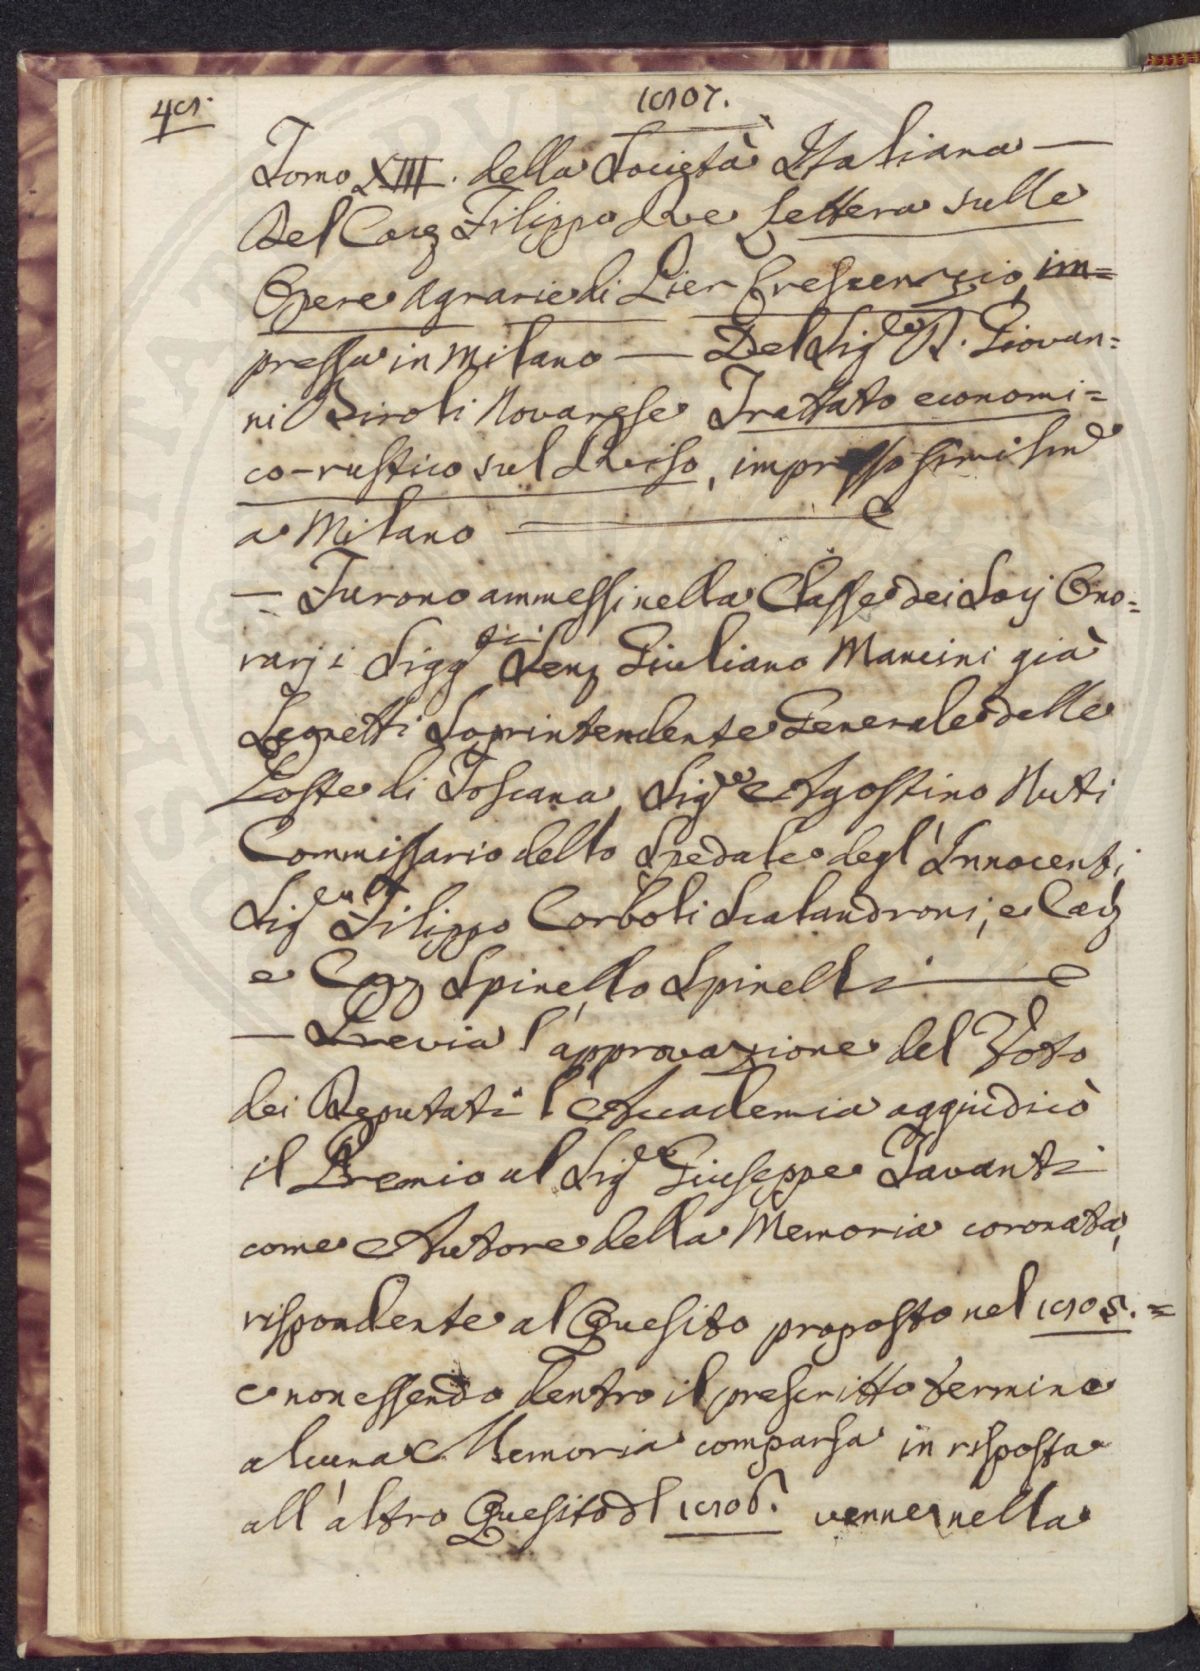 48.
1807.
Tomo XIII. della Società Italiana —
Del Cav Filippo Re Lettera sulle
Opere Agrarie di Pier Crescenzio, im=
pressa in Milano — Del Sig.e D. Giovan=
ni Biroli Novarese Trattato economi=
co-rustico sul Riso, impresso similm.e
a Milano —
— Furono ammessi nella Classe dei Socij Ono=
rarj i Sigg.ri Sen Giuliano Mancini già
Legnetti Soprintendente Generale delle
Poste di Toscana, Sig.e Agostino Nuti
Commissario dello Spedale degl'Innocenti,
Sig. Filippo Corboli Scalandroni, e Cav
e Cav Spinello Spinelli —
— Previa l'approvazione del Voto
dei Deputati l'Accademia aggiudicò
il Premio al Sig.e Giuseppe Tavanti
come Autore della Memoria coronata,
rispondente al Quesito proposto nel 1805. =
e non essendo dentro il prescritto termine
alcuna Memoria comparsa in risposta
all'altro Quesito dl 1806. venne nella